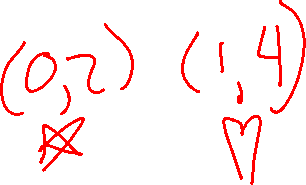 (0,2) (1,4)